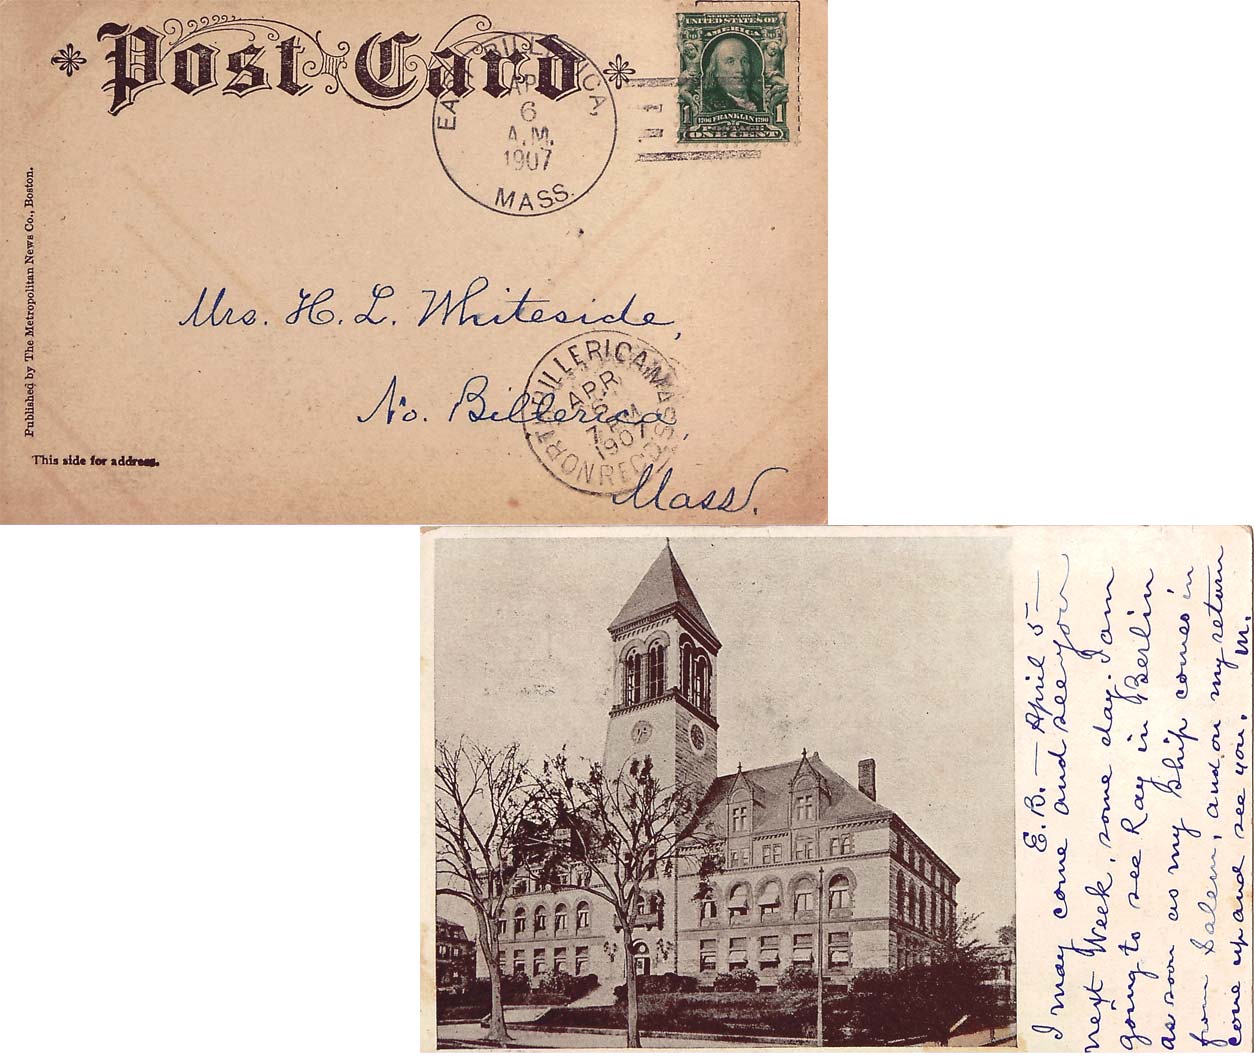 Post Card
EAST BILLERICA,
AP
6
A.M.
1907
MASS.
SERIES 1902
UNITED STATES OF
AMERICA
1 1
1706 FRANKLIN 1790
POSTAGE
ONE CENT
Published by The Metropolitan News Co., Boston.
Mrs. H. L. Whiteside,
No. Billerica,
Mass.
NORTH BILLERICA, MASS.
APR
6
7 PM
1907
REC'D
This side for address.
E. B. — April 5 —
I may come and see you
next Week, some day. I am
going to see Ray in Berlin
as soon as my ship comes in
from Salem, and on my return
come up and see you. M.